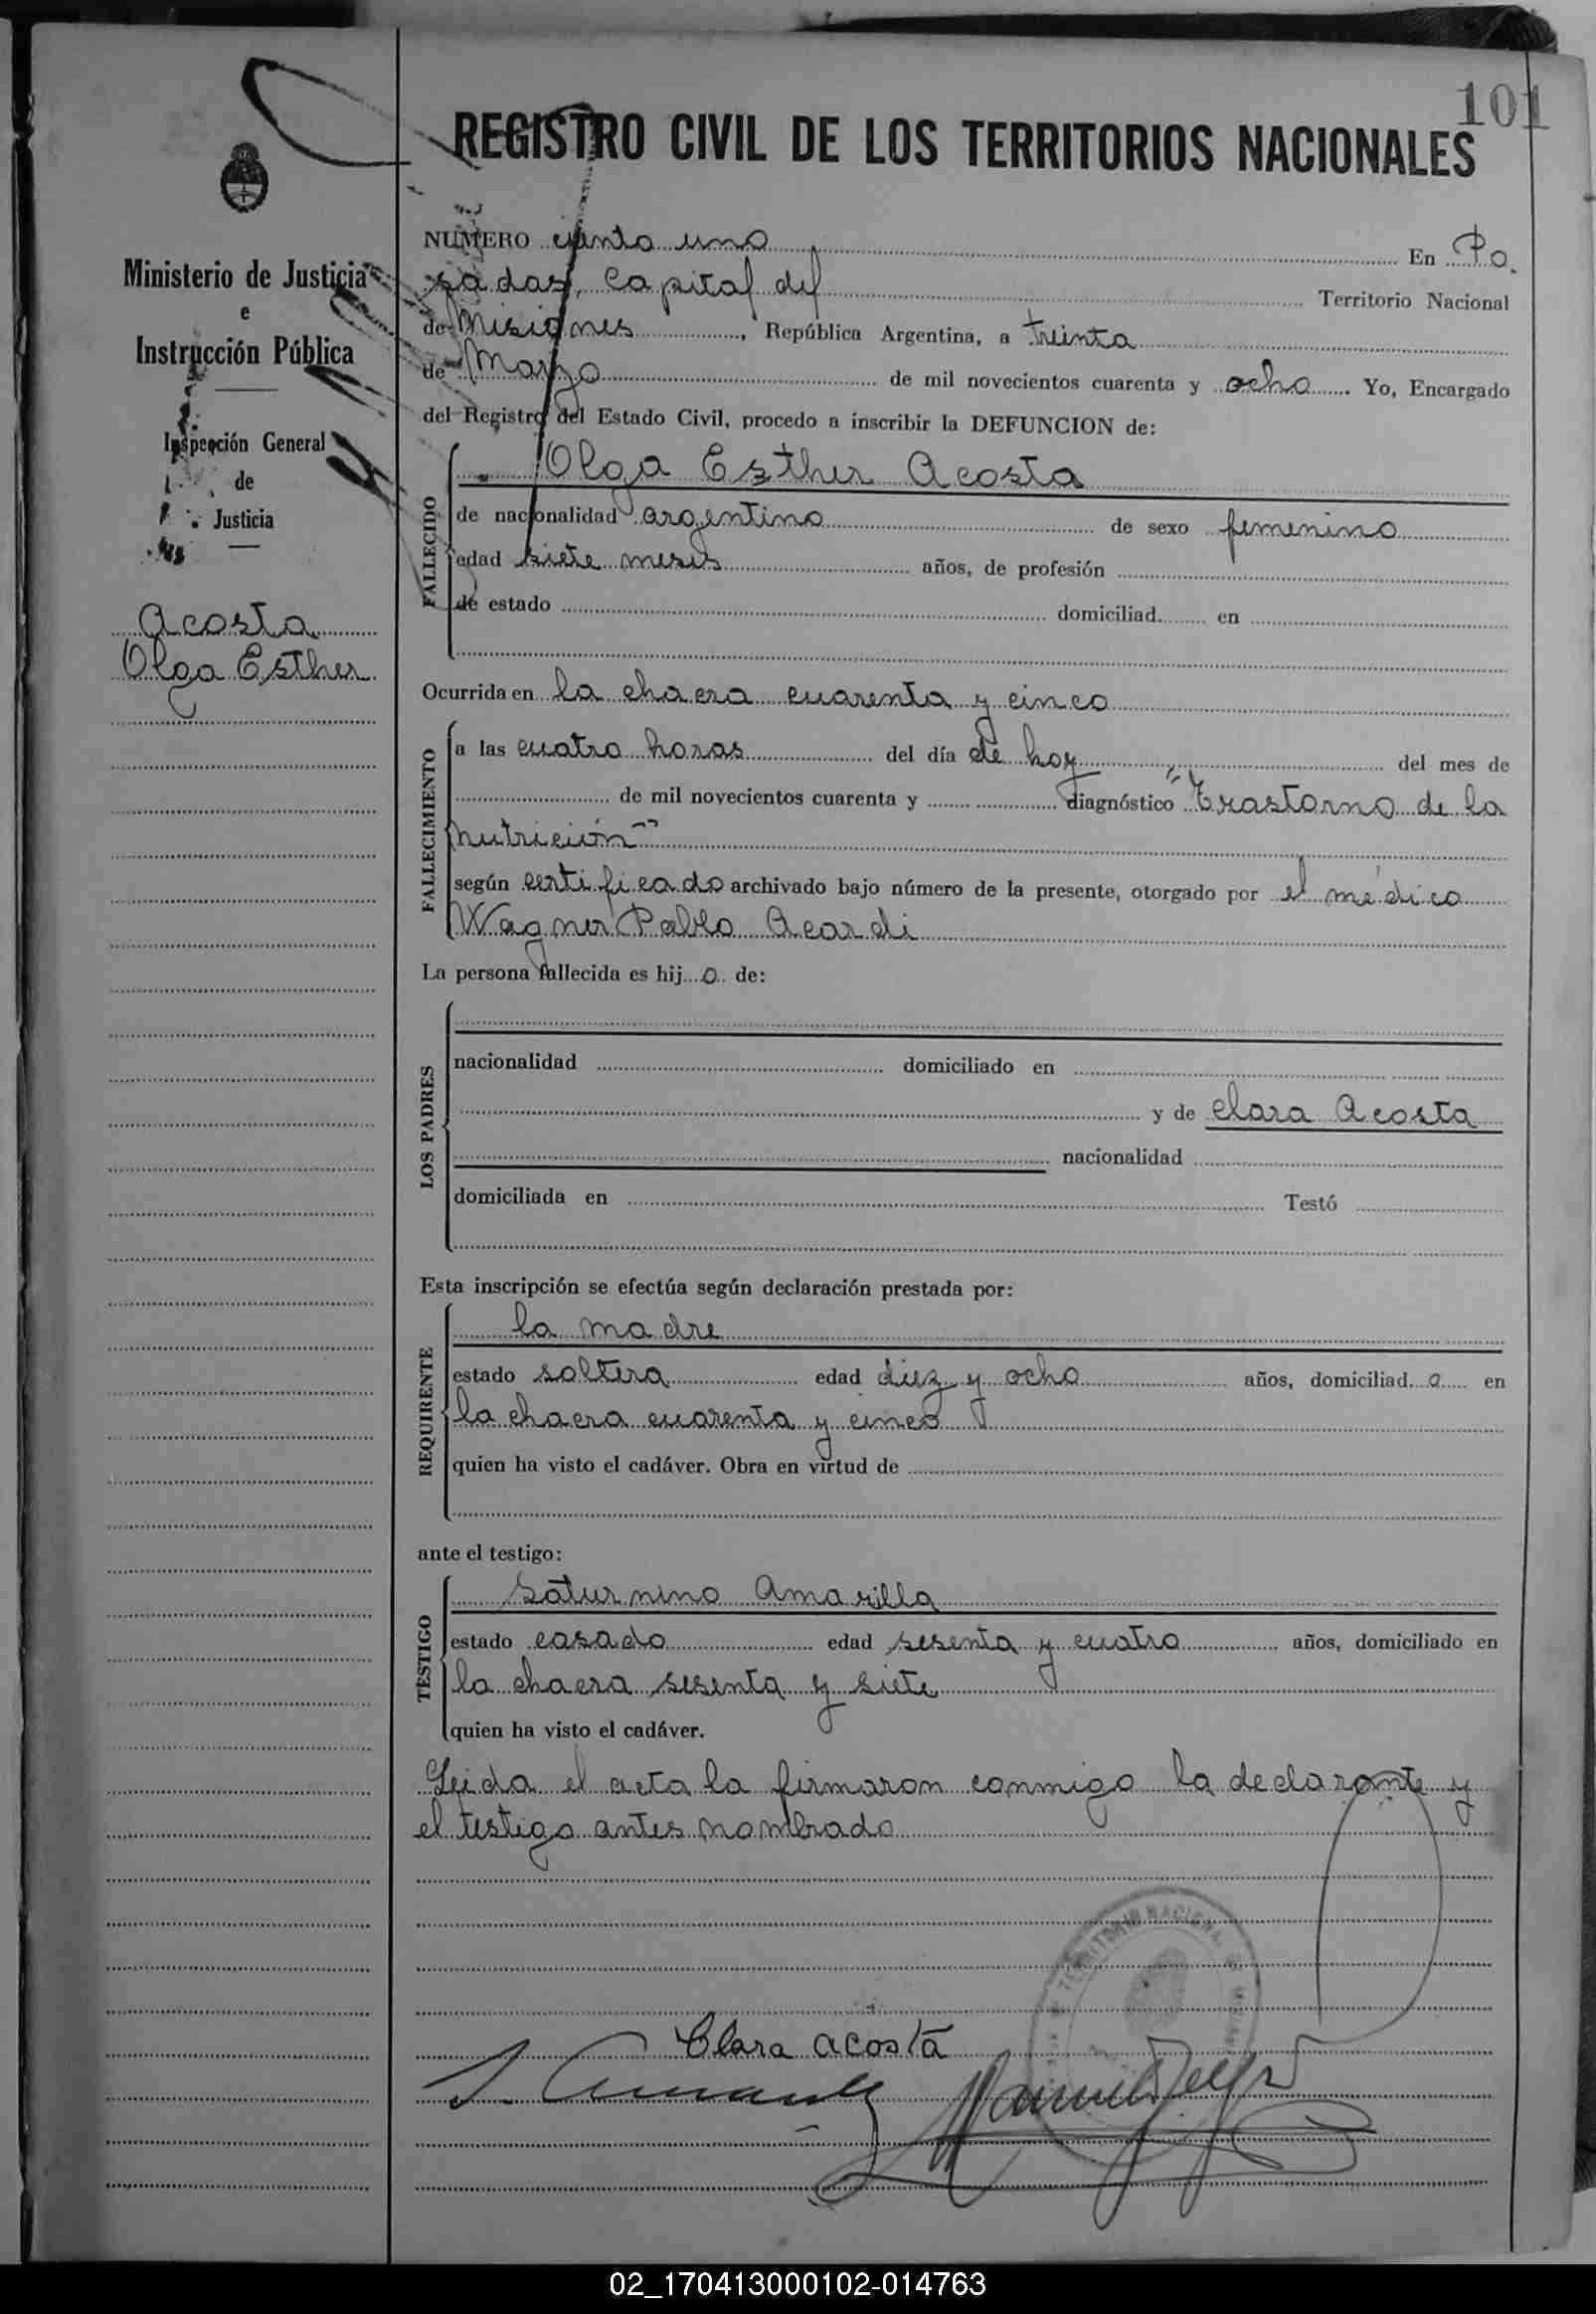 101
REGISTRO CIVIL DE LOS TERRITORIOS NACIONALES
Ministerio de Justicia
e
Instrucción Pública
Inspección General
de
Justicia
Acosta
Olga Esther
NUMERO ciento uno En Po.
sadas, Capital del Territorio Nacional
de Misiones, República Argentina, a treinta
de Marzo de mil novecientos cuarenta y ocho. Yo, Encargado
del Registro del Estado Civil, procedo a inscribir la DEFUNCION de:
FALLECIDO
Olga Esther Acosta
de nacionalidad argentina de sexo femenino
edad siete meses años, de profesión
de estado domiciliad en
Ocurrida en la chacra cuarenta y cinco
FALLECIMIENTO
a las cuatro horas del día de hoy del mes de
de mil novecientos cuarenta y diagnóstico "Trastorno de la
nutrición"
según certificado archivado bajo número de la presente, otorgado por el médico
Wagner Pablo Acardi
La persona fallecida es hija de:
LOS PADRES
nacionalidad domiciliado en
y de Clara Acosta
nacionalidad
domiciliada en Testó
Esta inscripción se efectúa según declaración prestada por:
REQUIRENTE
la madre
estado soltera edad diez y ocho años, domiciliada en
la chacra cuarenta y cinco
quien ha visto el cadáver. Obra en virtud de
ante el testigo:
TESTIGO
Saturnino Amarilla
estado casado edad sesenta y cuatro años, domiciliado en
la chacra sesenta y siete
quien ha visto el cadáver.
Leida el acta la firmaron conmigo la declarante y
el testigo antes nombrado
TERRITORIO NACIONAL
Clara Acosta
02_170413000102-014763